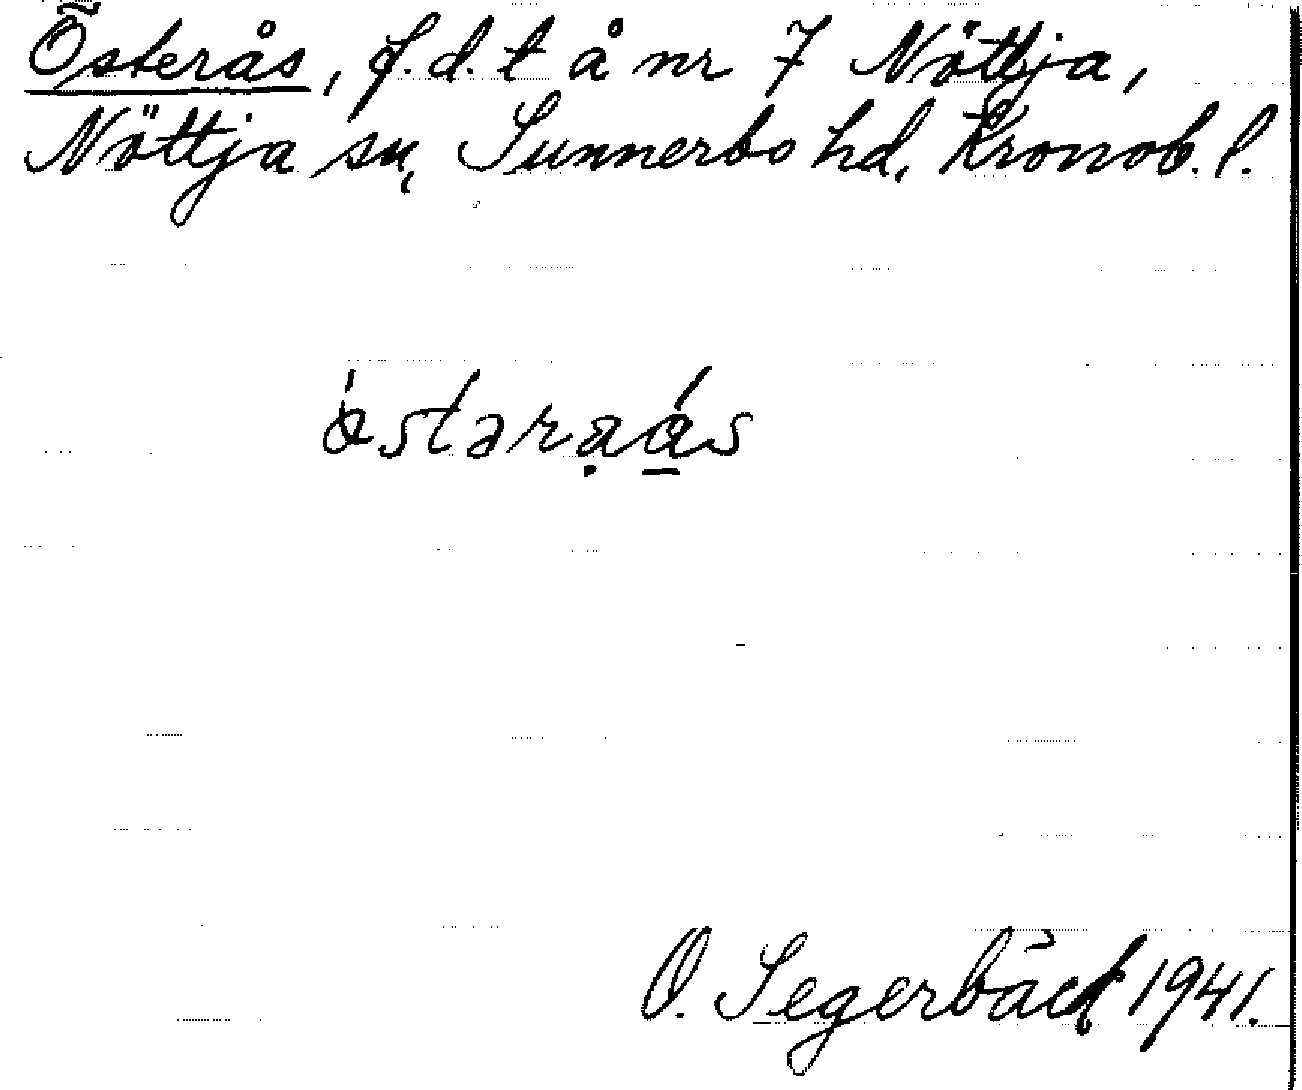 Österås, f.d. t å nr 7 Nöttja,
Nöttja sn, Sunnerbo hd, Kronob. l.
O. Segerbäck 1941.